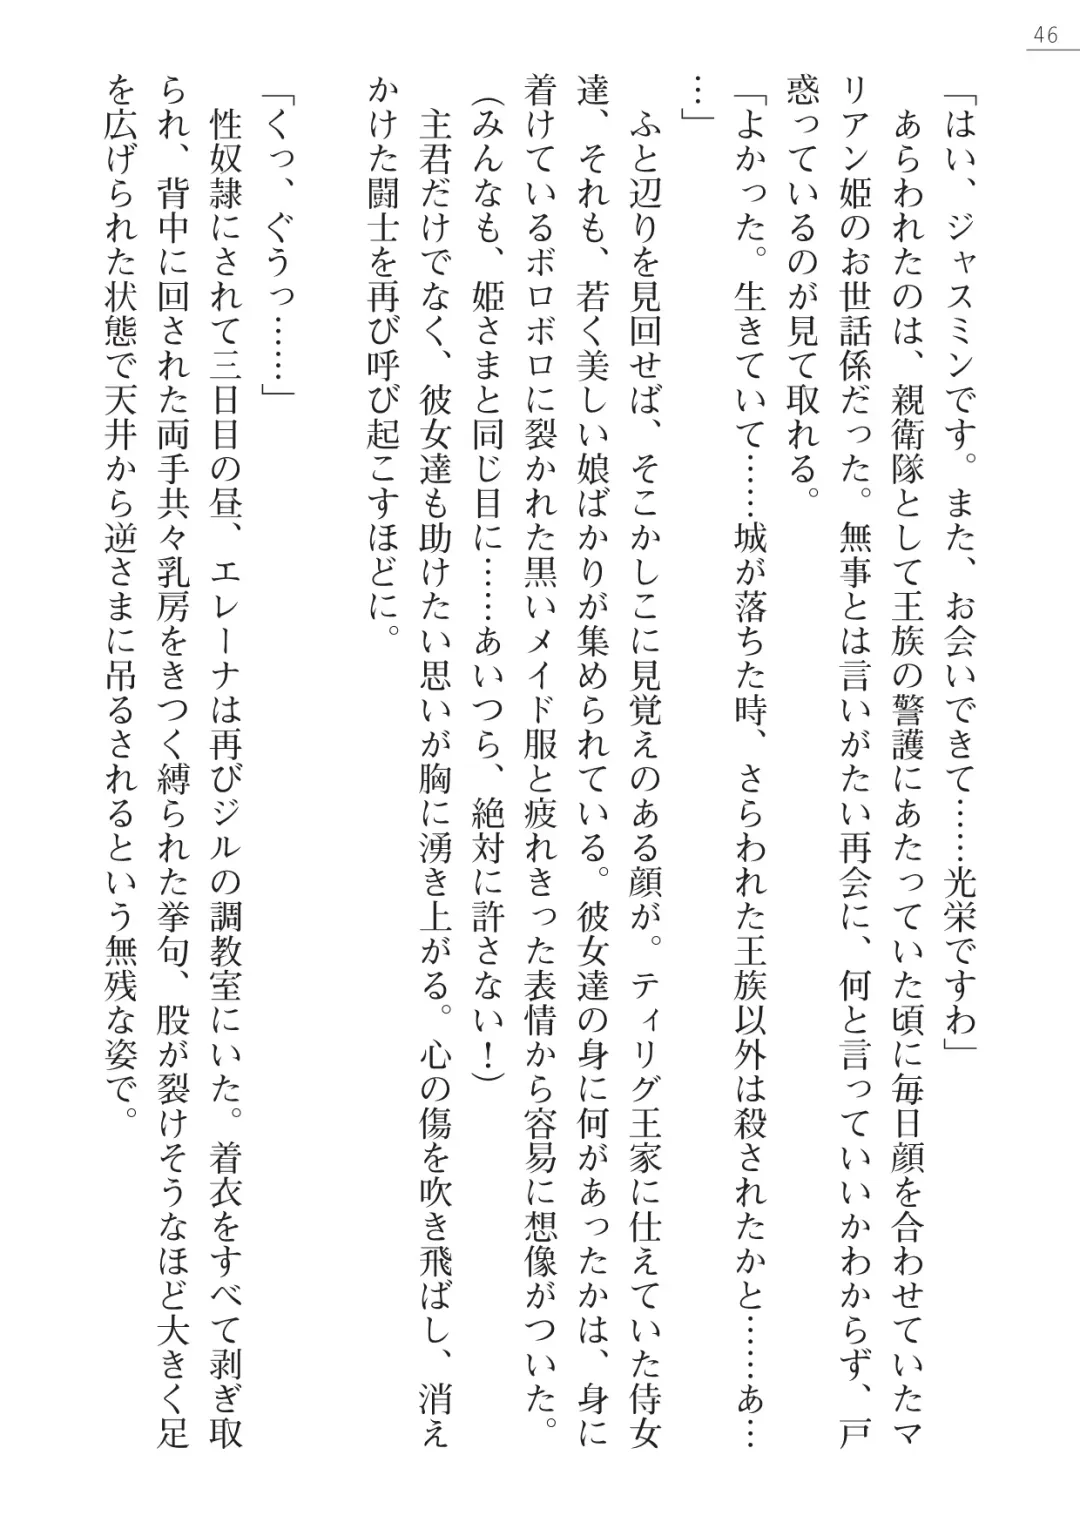 46
「はい、ジャスミンです。また、お会いできて……光栄ですわ」
　あらわれたのは、親衛隊として王族の警護にあたっていた頃に毎日顔を合わせていたマ
リアン姫のお世話係だった。無事とは言いがたい再会に、何と言っていいかわからず、戸
惑っているのが見て取れる。
「よかった。生きていて……城が落ちた時、さらわれた王族以外は殺されたかと……あ…
…」
　ふと辺りを見回せば、そこかしこに見覚えのある顔が。ティリグ王家に仕えていた侍女
達、それも、若く美しい娘ばかりが集められている。彼女達の身に何があったかは、身に
着けているボロボロに裂かれた黒いメイド服と疲れきった表情から容易に想像がついた。
（みんなも、姫さまと同じ目に……あいつら、絶対に許さない！）
　主君だけでなく、彼女達も助けたい思いが胸に湧き上がる。心の傷を吹き飛ばし、消え
かけた闘士を再び呼び起こすほどに。
「くっ、ぐうっ……」
　性奴隷にされて三日目の昼、エレーナは再びジルの調教室にいた。着衣をすべて剥ぎ取
られ、背中に回された両手共々乳房をきつく縛られた挙句、股が裂けそうなほど大きく足
を広げられた状態で天井から逆さまに吊るされるという無残な姿で。